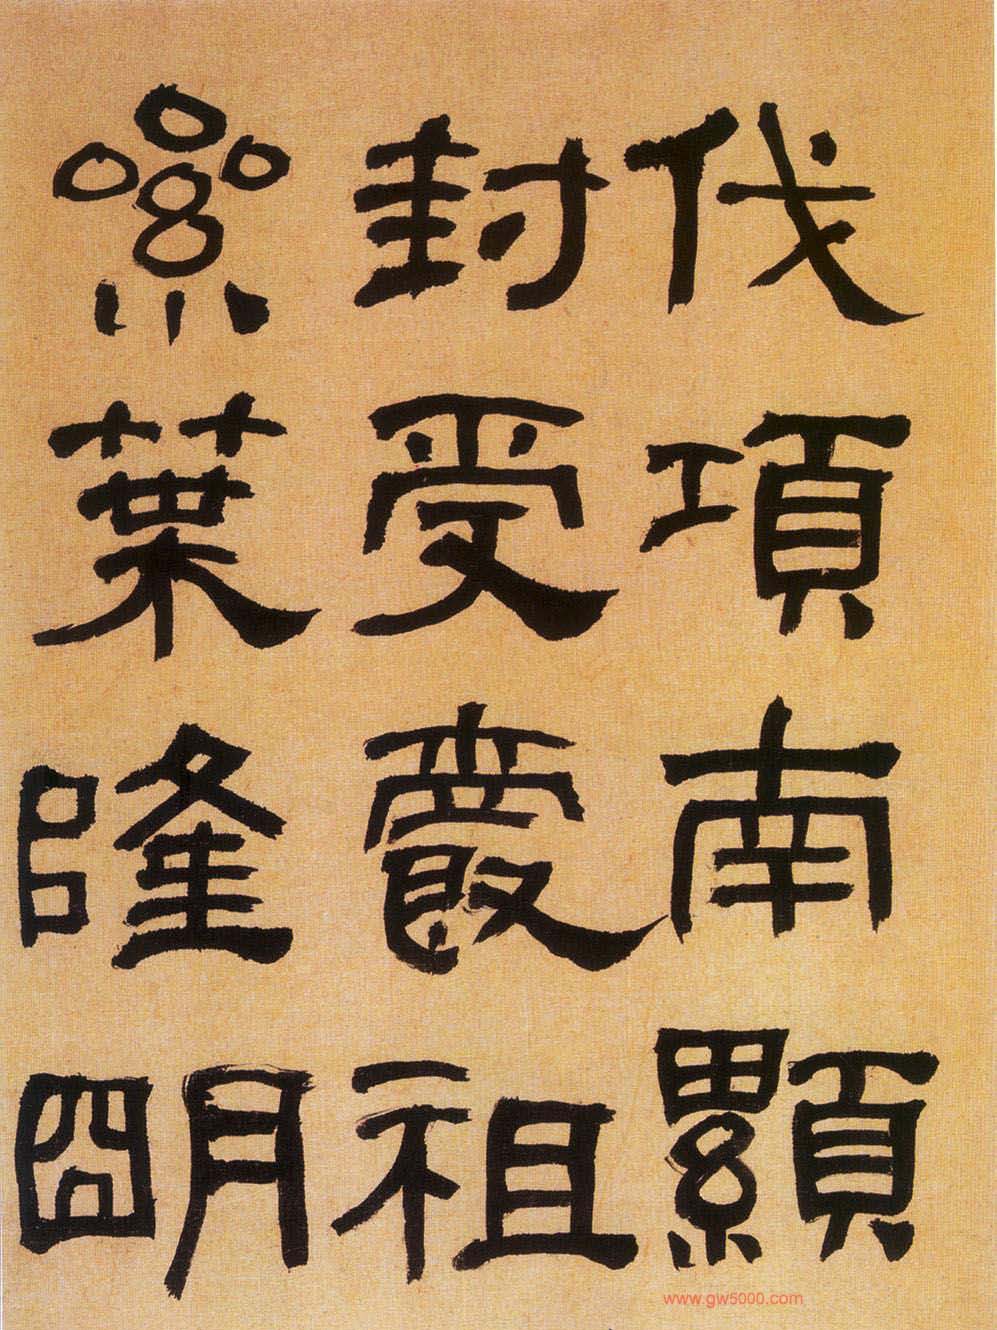 伐項南顯
封受爵祖
絫葉隆朙
www.gw5000.com